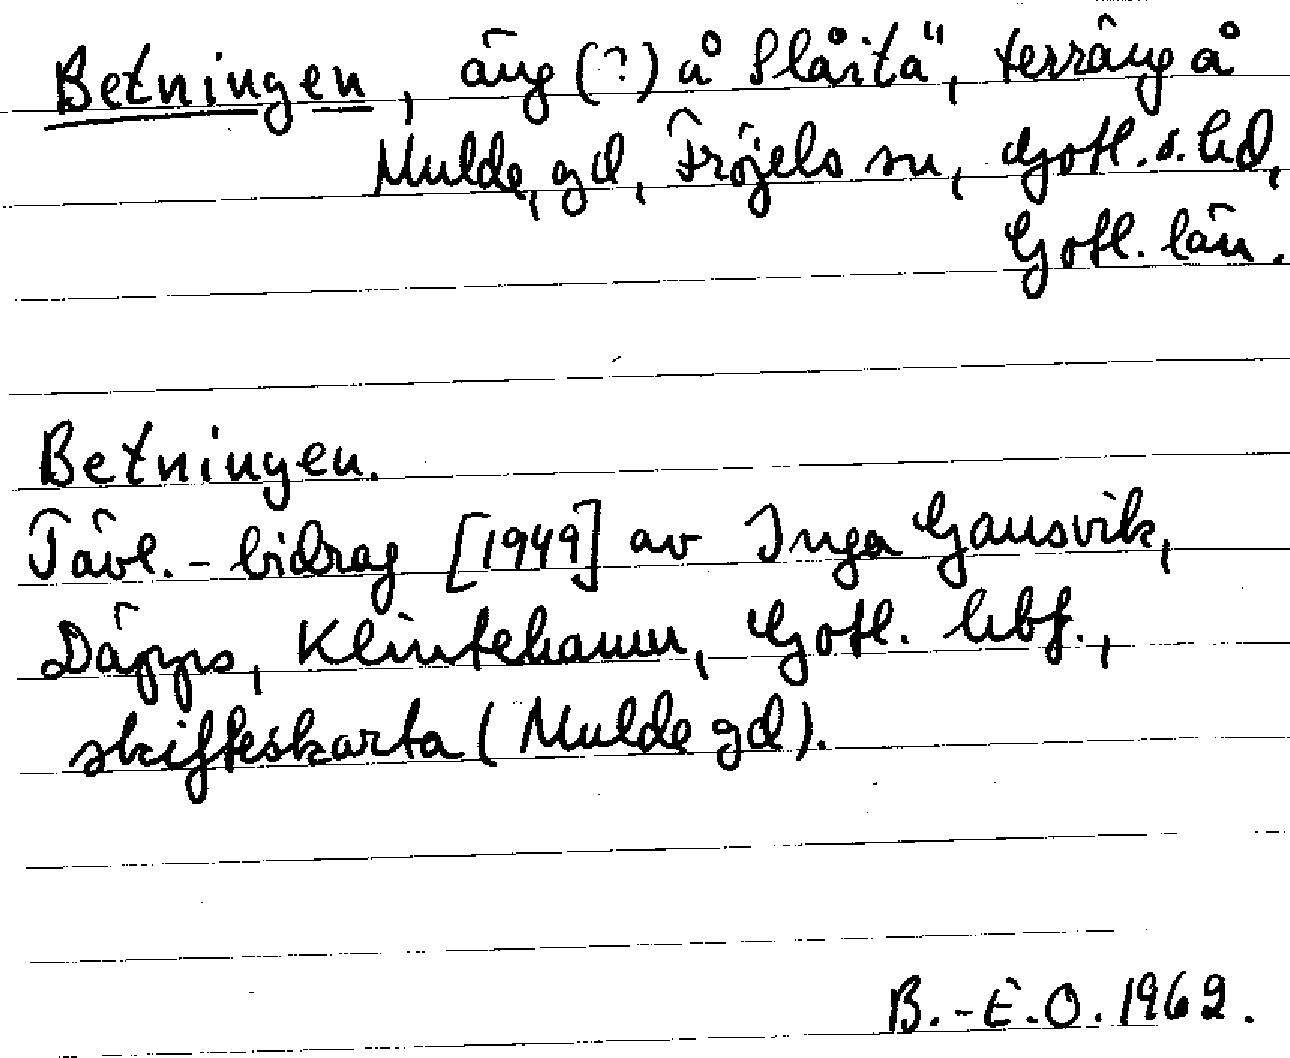 Betningen, äng (?) å Slåitä, terräng å
Mulde, gd, Fröjels sn, Gotl. s. hd,
Gotl. län.
Betningen.
Tävl.-bidrag [1949] av Inga Gansvik,
Däpps, Klintehamn, Gotl. hbf.,
skifteskarta (Mulde gd).
B.-E.O. 1962.